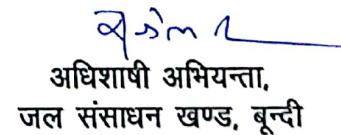 अधिशाषी अभियन्ता,
जल संसाधन खण्ड, बून्दी